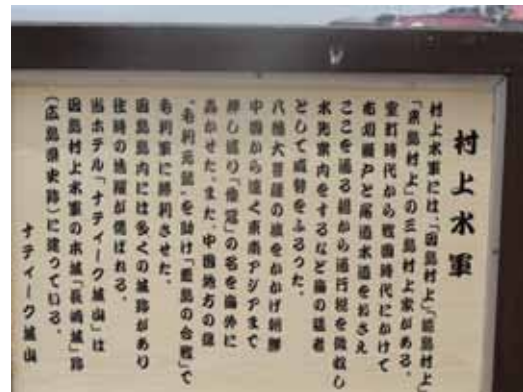 村上水軍
村上水軍には、「因島村上」「能島村上」
「来島村上」の三島村上家がある。
室町時代から戦国時代にかけて
布刈瀬戸と尾道水道をおさえ
ここを通る船から通行税を徴収し
水先案内をするなど海の猛者
として威勢をふるった。
八幡大菩薩の旗をかかげ朝鮮
中国から遠く東南アジアまで
押し渡り「倭寇」の名を海外に
轟かせた。また、中国地方の雄
「毛利元就」を助け「厳島の合戦」で
毛利軍に勝利させた。
因島島内には多くの城跡があり
往時の活躍が偲ばれる。
当ホテル「ナティーク城山」は
因島村上水軍の本城「長崎城」跡
(広島県史跡)に建っている。
ナティーク城山